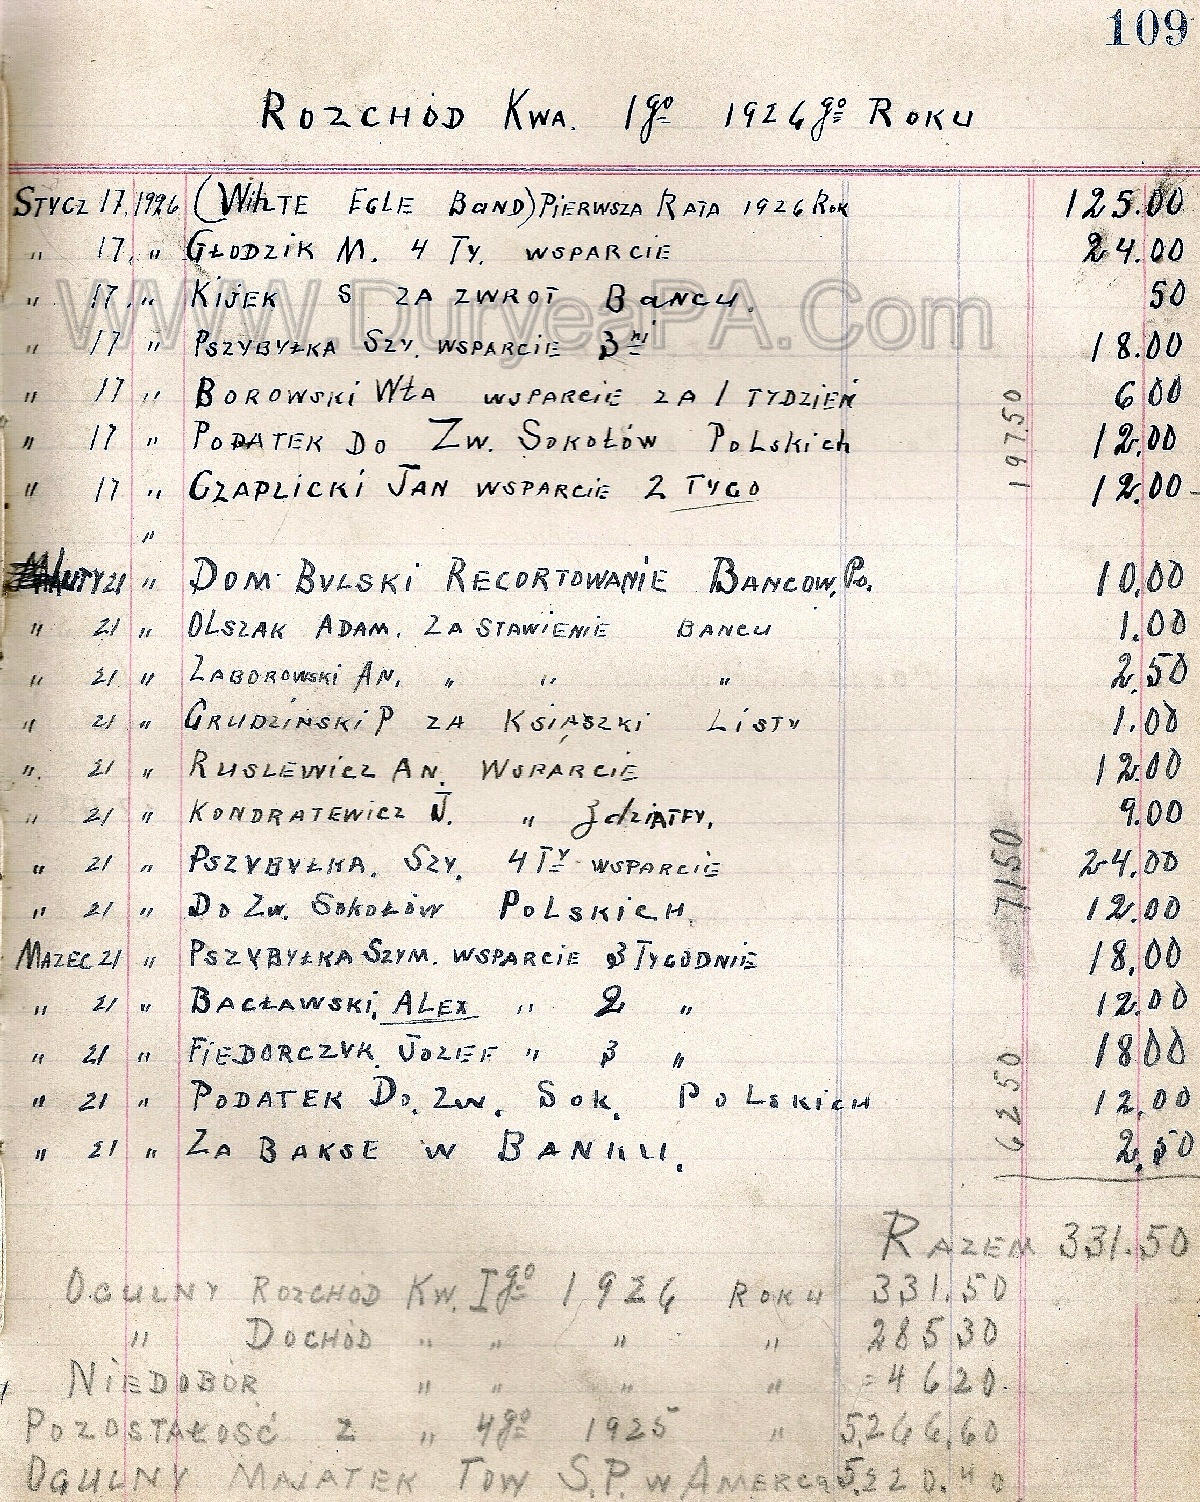 109
ROZCHÓD KWA. 1go 1926go ROKU
STYCZ 17, 1926 (WIHTE EGLE BAND) PIERWSZA RATA 1926 ROK 125.00
" 17, " GŁODZIK M. 4 TY. WSPARCIE 24.00
" 17, " KIJEK S ZA ZWROT BANCU. 50
WWW.DuryeaPA.Com
" 17 " PSZYBYŁKA SZY. WSPARCIE 3 NI 18.00
" 17 " BOROWSKI WŁA WSPARCIE ZA 1 TYDZIEŃ 6 00
" 17 " PODATEK DO ZW. SOKOŁÓW POLSKICH 12.00
" 17 " CZAPLICKI JAN WSPARCIE 2 TYGO 12.00
197.50
"
LUTY 21 " DOM BULSKI RECORTOWANIE BANCOW. PO. 10.00
" 21 " OLSZAK ADAM. ZA STAWIENIE BANCU 1.00
" 21 " ZABOROWSKI AN. " " " 2.50
" 21 " GRUDZIŃSKI P ZA KSIĄSZKI LISTY 1.00
" 21 " RUSLEWICZ AN. WSPARCIE 12.00
" 21 " KONDRATEWICZ J. " 9.00
" 21 " PSZYBYŁKA. SZY. 4 TY WSPARCIE 24.00
" 21 " DO ZW. SOKOŁÓW POLSKICH. 12.00
7150
MAZEC 21 " PSZYBYŁKA SZYM. WSPARCIE 3 TYGODNIE 18.00
" 21 " BACŁAWSKI, ALEX " 2 " 12.00
" 21 " FIEDORCZYK JOZEF " 3 " 18 00
" 21 " PODATEK DO. ZW. SOK. POLSKICH 12.00
" 21 " ZA BAKSE W BANKU. 2.50
6250
RAZEM 331.50
OGULNY ROZCHÓD KW. Igo 1926 ROKU 331.50
" DOCHÓD " " " " 285 30
NIEDOBÓR " " " " = 46 20.
POZOSTAŁOŚĆ Z " 4go 1925 " 5,266,60
OGULNY MAJATEK TOW S.P. W AMERCA 5.220.40